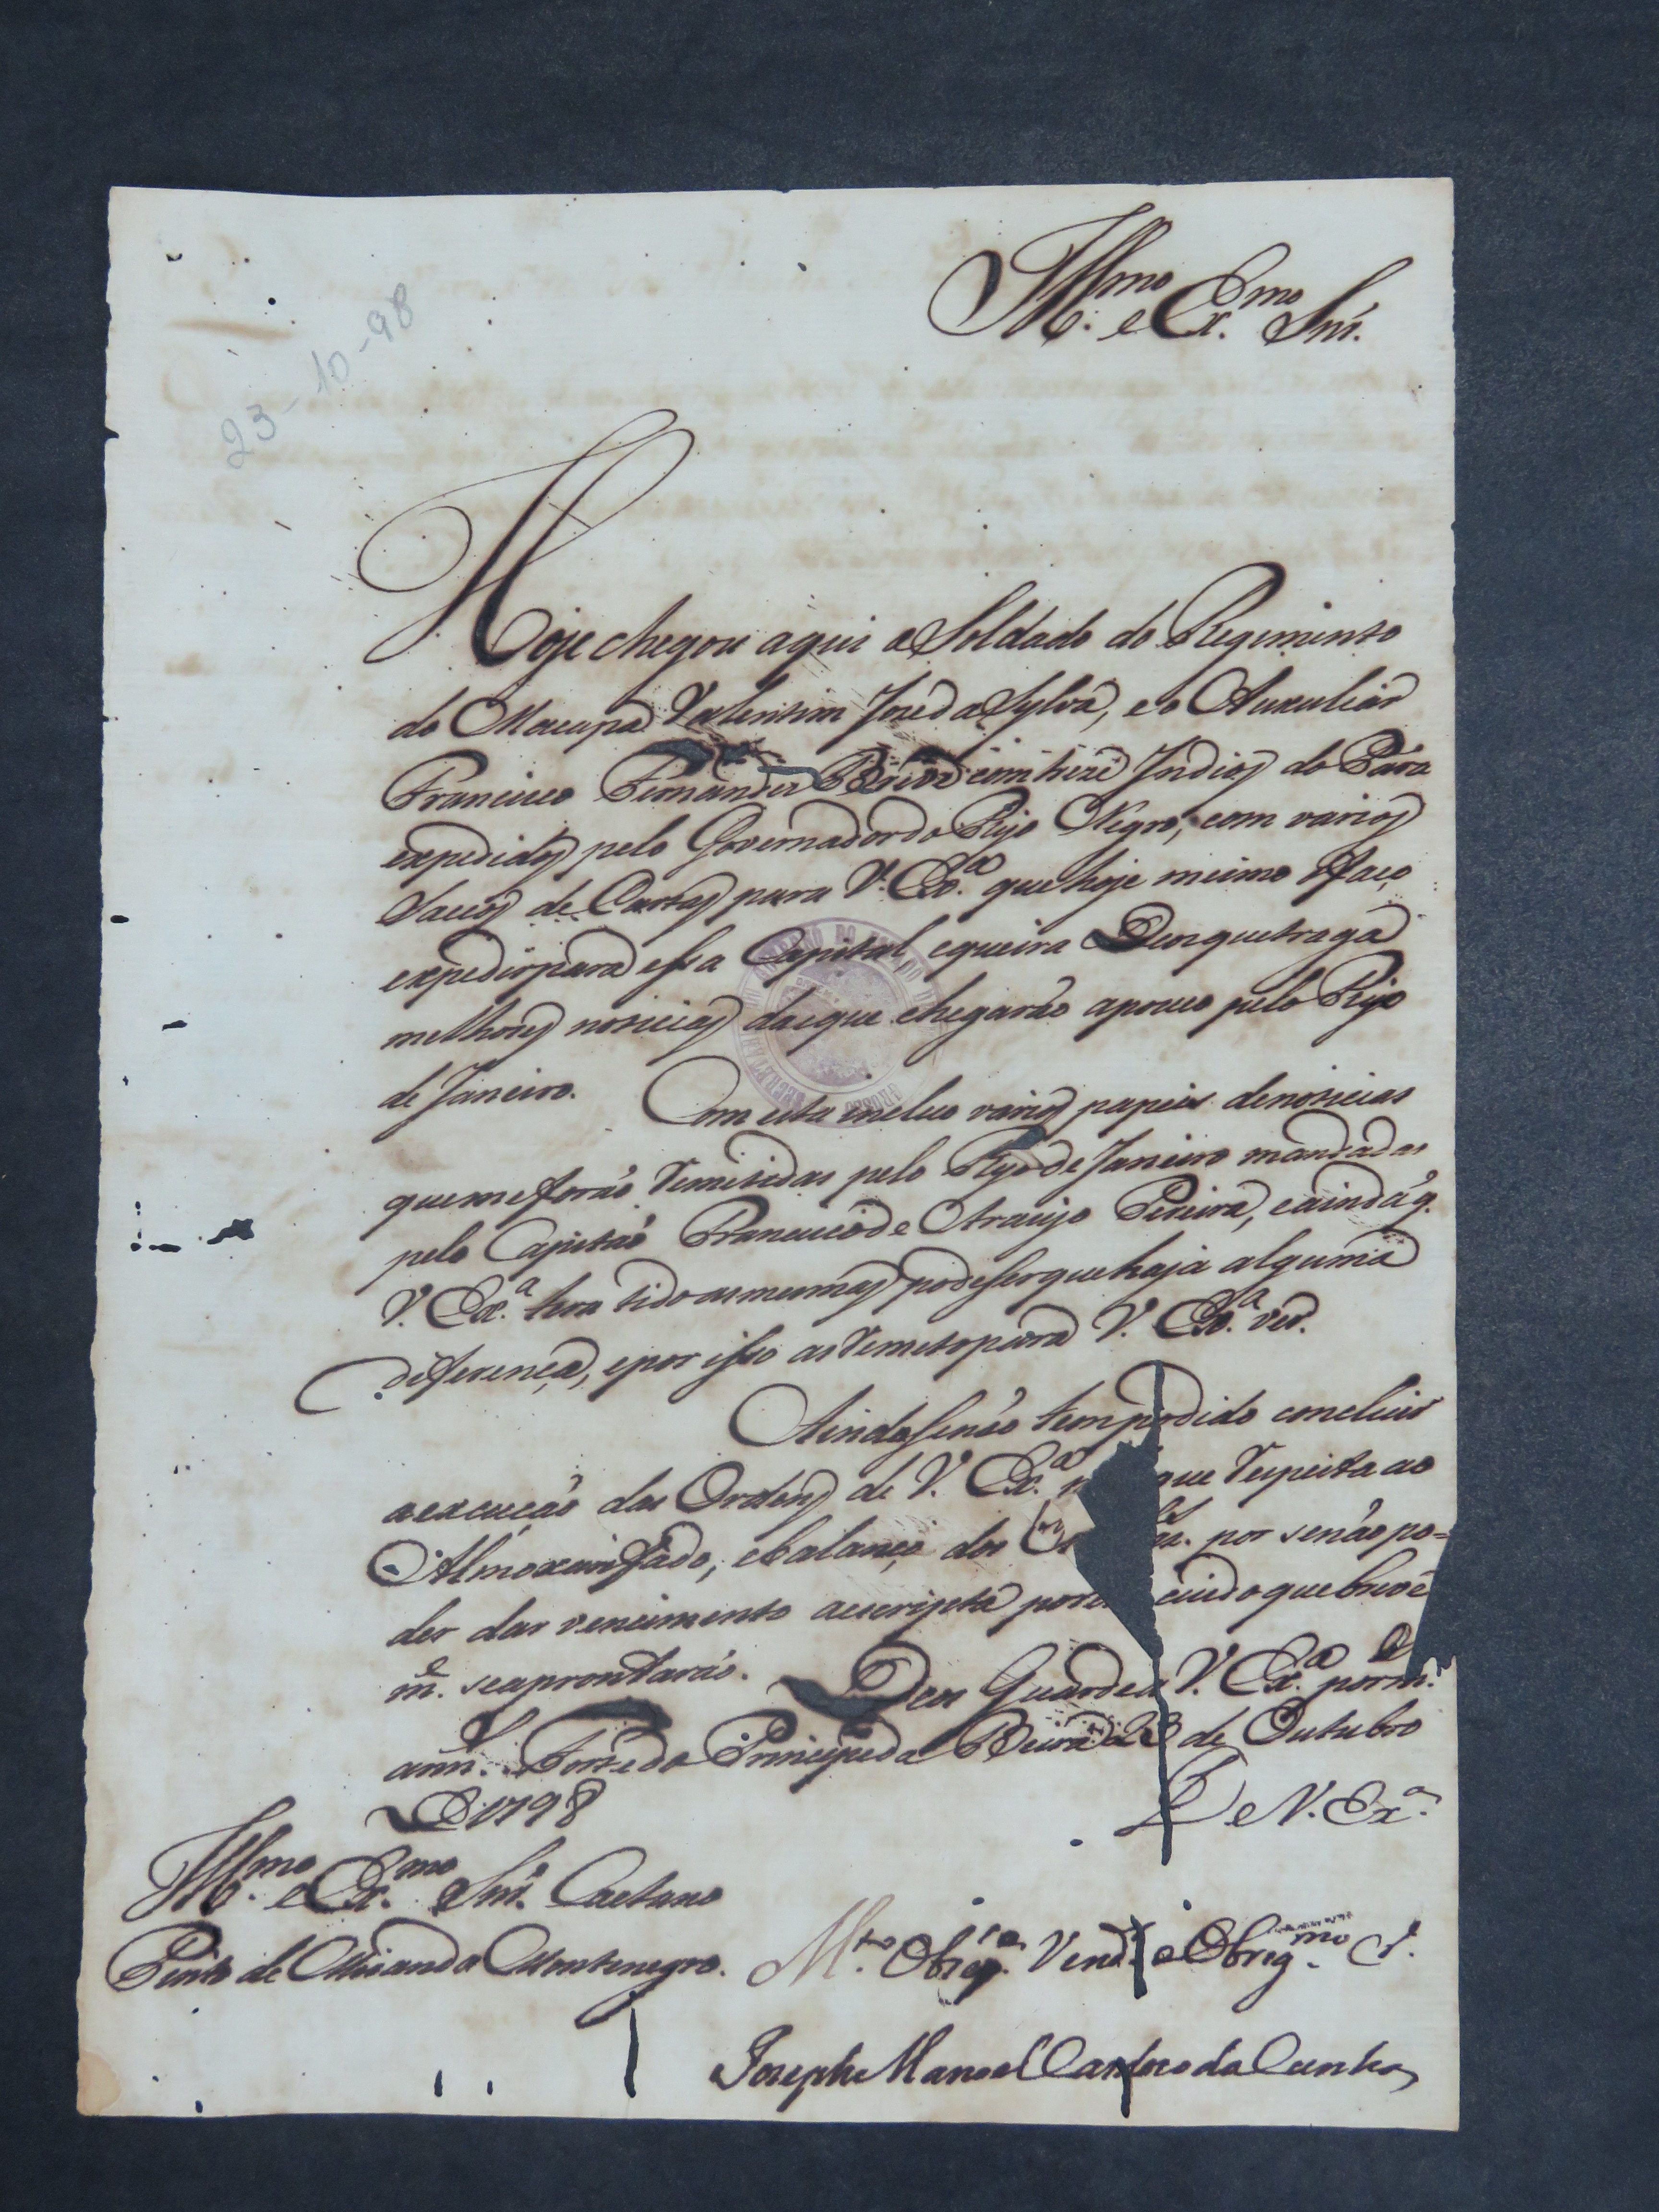 Ill.mo e Ex.mo Snr.
23-10-98
Hoje chegou aqui o Soldado do Regimento
do Macapá Valentim Joze da Sylva, e o Auxuliar
Francisco Fernandes com treze Indios do Pará
expedidos pelo Governador do Rijo Negro, com varios
Saccos de Cartas para V. Ex.a que hoje mesmo faço
expedir para essa Capital, e queira Deos que traga
melhores noticias das que chegarão a pouco pelo Rijo
de Janeiro. Com esta incluo varios papeis de noticias
que me forão remetidas pelo Rijo de Janeiro mandadas
pelo Capitão Francisco de Araujo Pereira, e ainda q.
V. Ex.a tera tido as mesmas, pode ser que haja alguma
diferença, e por isso as remeto para V. Ex.a ver.
Ainda se não tem podido concluir
a execução das Ordens de V. Ex.a que respeita ao
Almoxarifado, e balanço dos por se não po=
der dar vencimento a escripta que breve
m.e se aprontarão. Deos Guarde a V. Ex.a por m.
ann.s Forte do Principe da Beira 23 de Outubro
de 1798
De V. Ex.a
Ill.mo e Ex.mo Snr. Caetano
Pinto de Miranda Montenegro.
M.to Obrig.mo C.
Joseph Manoel Cardoso da Cunha